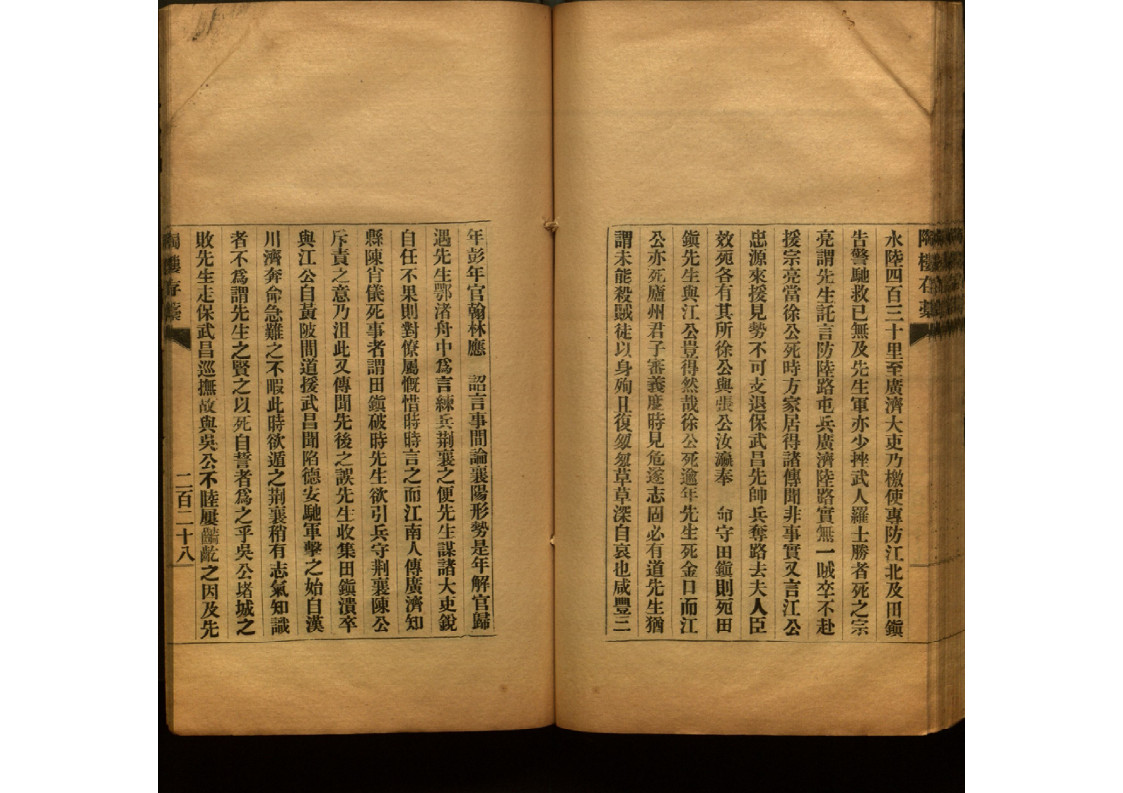 水陸四百三十里至廣濟大吏乃檄使專防江北及田鎭
告警馳救已無及先生軍亦少挫武人羅士勝者死之宗
亮謂先生託言防陸路屯兵廣濟陸路實無一賊卒不赴
援宗亮當徐公死時方家居得諸傳聞非事實又言江公
忠源來援見勢不可支退保武昌先帥兵奪路去夫人臣
效死各有其所徐公與張公汝瀛奉 命守田鎭則死田
鎭先生與江公豈得然哉徐公死逾年先生死金口而江
公亦死廬州君子審義度時見危遂志固必有道先生猶
謂未能殺賊徒以身殉且復匆匆草草深自哀也咸豐三
年彭年官翰林應 詔言事間論襄陽形勢是年解官歸
遇先生鄂渚舟中爲言練兵荆襄之便先生謀諸大吏銳
自任不果則對僚屬慨惜時時言之而江南人傳廣濟知
縣陳肖儀死事者謂田鎭破時先生欲引兵守荆襄陳公
斥責之意乃沮此又傳聞先後之誤先生收集田鎭潰卒
與江公自黃陂間道援武昌聞陷德安馳軍擊之始自漢
川濟奔命急難之不暇此時欲遁之荆襄稍有志氣知識
者不爲謂先生之賢之以死自誓者爲之乎吳公堵城之
敗先生走保武昌巡撫故與吳公不睦屢齮齕之因及先
二百二十八